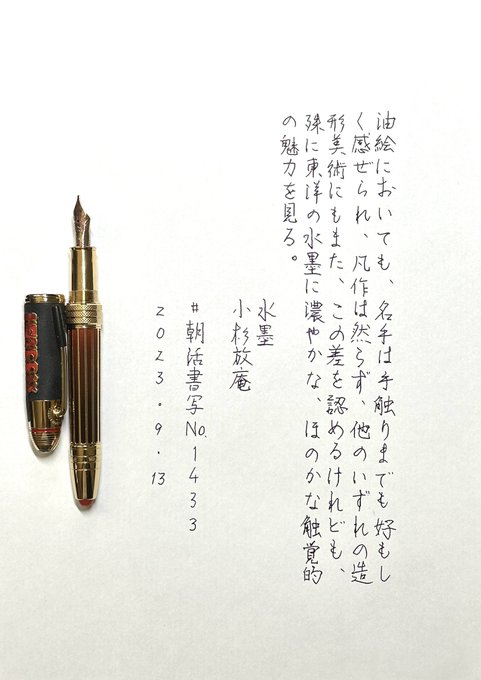 油絵においても、名手は手触りまでも好もし
く感ぜられ、凡作は然らず、他のいずれの造
形美術にもまた、この差を認めるけれども、
殊に東洋の水墨に濃やかな、ほのかな触覚的
の魅力を見る。
水墨
小杉放庵
#朝活書写No.1433
2023.9.13